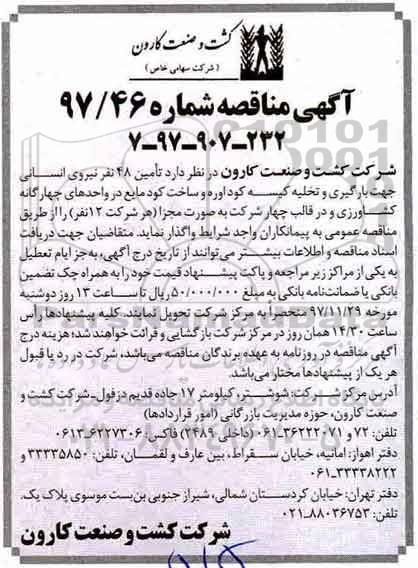 کشت و صنعت کارون
( شرکت سهامی خاص )
آگهی مناقصه شماره ۹۷/۴۶
۷-۹۷-۹۰۷-۲۳۲
شرکت کشت و صنعت کارون در نظر دارد تأمین ۴۸ نفر نیروی انسانی
جهت بارگیری و تخلیه کیسه کود اوره و ساخت کود مایع در واحدهای چهارگانه
کشاورزی و در قالب چهار شرکت به صورت مجزا (هر شرکت ۱۲نفر) را از طریق
مناقصه عمومی به پیمانکاران واجد شرایط واگذار نماید. متقاضیان جهت دریافت
اسناد مناقصه و اطلاعات بیشتر می‌توانند از تاریخ درج آگهی، به‌جز ایام تعطیل
به یکی از مراکز زیر مراجعه و پاکت پیشنهاد قیمت خود را به همراه چک تضمین
بانکی یا ضمانت‌نامه بانکی به مبلغ ۵۰/۰۰۰/۰۰۰ ریال تا ساعت ۱۳ روز دوشنبه
مورخه ۹۷/۱۱/۲۹ منحصراً به مرکز شرکت تحویل نمایند. کلیه پیشنهادها رأس
ساعت ۱۴/۳۰ همان روز در مرکز شرکت بازگشایی و قرائت خواهند شد؛ هزینه درج
آگهی مناقصه در روزنامه به عهده برندگان مناقصه می‌باشد، شرکت در رد یا قبول
هر یک از پیشنهادها مختار می‌باشد.
آدرس مرکز شرکت: شوشتر، کیلومتر ۱۷ جاده قدیم دزفول-شرکت کشت و
صنعت کارون، حوزه مدیریت بازرگانی (امور قراردادها)
تلفن: ۷۲ و ۳۶۲۲۲۰۷۱-۰۶۱ (داخلی ۲۴۸۹) فاکس: ۶۲۲۷۳۰۶-۰۶۱۳
دفتر اهواز: امانیه، خیابان سقراط، بین عارف و لقمان، تلفن: ۳۳۳۳۵۸۵۰ و
۳۳۳۳۸۲۲۲-۰۶۱
دفتر تهران: خیابان کردستان شمالی، شیراز جنوبی بن‌بست موسوی پلاک یک.
تلفن: ۸۸۰۳۶۷۵۳-۰۲۱
شرکت کشت و صنعت کارون